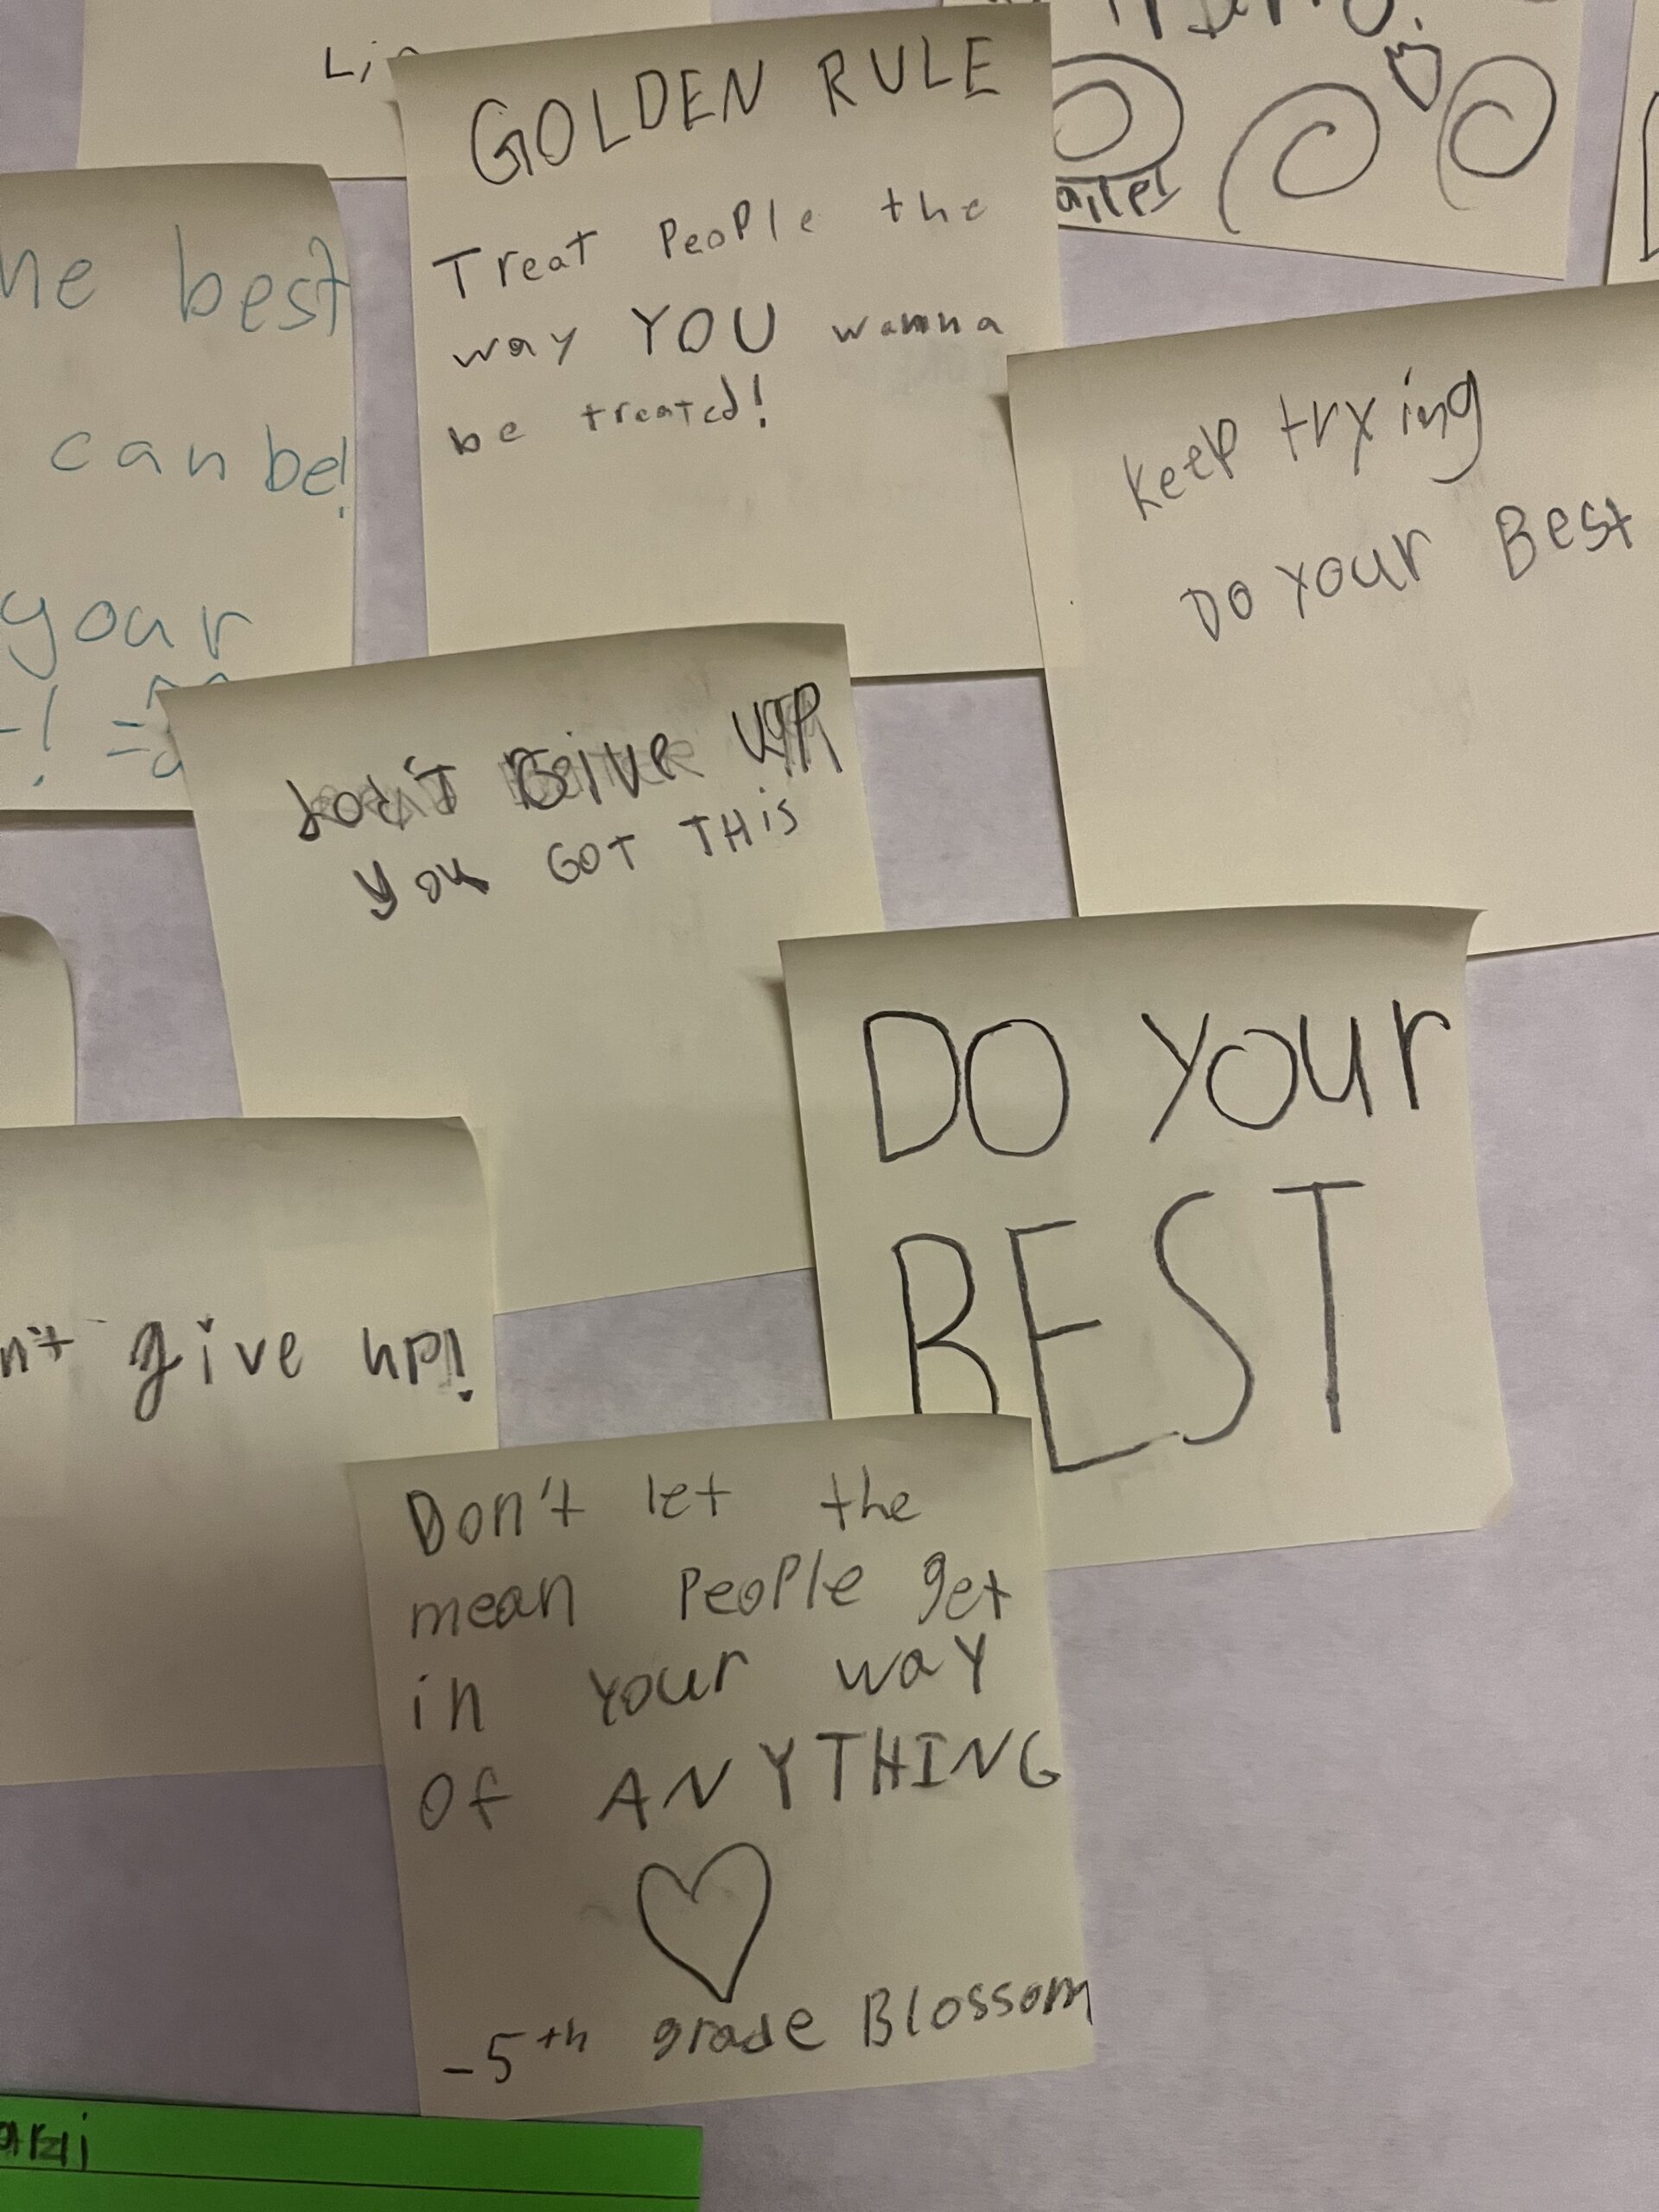 GOLDEN RULE
Treat People the
way YOU wanna
be treated!
he best
can be!
your
Keep trying
Do Your Best
don't Give UP
you GOT THiS
DO Your
BEST
n't give up!
Don't let the
mean People get
in Your way
Of ANYTHING
-5th grade Blossom